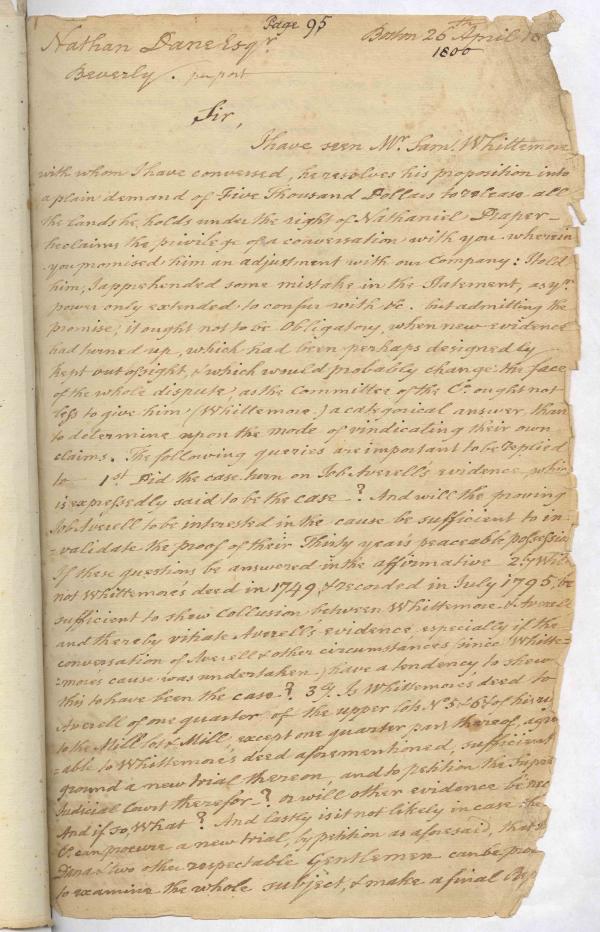 Page 95
Nathan Dane Esqr Boston 26th April 18
1800
Beverly.
Sir,
I have seen Mr. Saml. Whittemore
with whom I have conversed, he resolves his proposition into
a plain demand of Five Thousand Dollars to release all
the lands he, holds under the right of Nathaniel Draper –
he claims the privilege of a conversation with you wherein
you promised him an adjustment with our Company: I told
him, I apprehended some mistake in the Statement, as yr.
power only extended to confer with &c. but admitting the
promise, it ought not to be Obligatory, when new evidence
had turned up, which had been perhaps designedly
kept out of sight, & which would probably change the face
of the whole dispute, as the Committee of the Co. ought not
less to give him (Whittemore) a categorical answer, than
to determine upon the mode of vindicating their own
claims. The following queries are important to be replied
to – 1st. Did the case turn on Job Averell's evidence, which
is expressedly said to be the case –? And will the proving
Job Averell to be interested in the cause be sufficient to in-
=validate the proof of their Thirty year's peaceable possession
If these questions be answered in the affirmative 2ly. Will
not Whittemore's deed in 1749, & recorded in July 1795, be
sufficient to shew Collusion between Whittemore & Averell
and thereby vitiate Averell's evidence, especially if the
conversation of Averell & other circumstances (since Whitte=
=mores cause was undertaken) have a tendency to shew
this to have been the case –? 3ly. Is Whittemore's deed to
Averell of one quarter of the upper Lots No. 5 & 6 & of his
to the Mill lot & Mill, except one quarter part thereof, agree
=able to Whittemore's deed aforementioned, sufficient
ground a new trial thereon, and to petition the Supre
Judicial Court therefor –? or will other evidence be nec
And if so, What? And Lastly is it not likely in case the
Co. can procure a new trial, by petition as aforesaid, that
Dana & two other respectable Gentlemen can be
to examine the whole subject, & make a final Rep